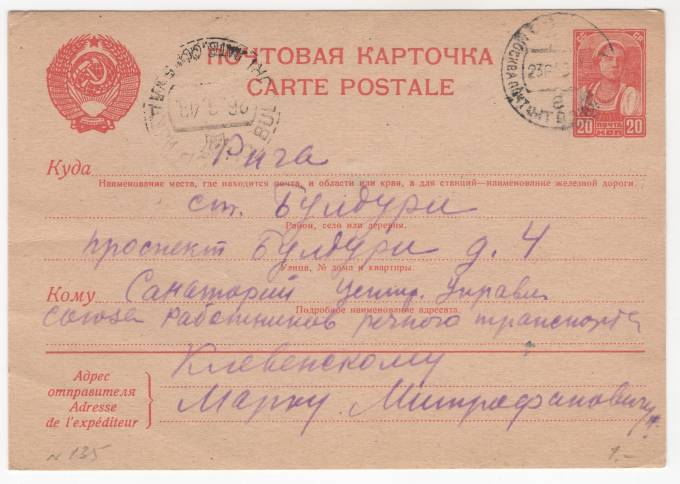 ПОЧТОВАЯ КАРТОЧКА
CARTE POSTALE
20 ПОЧТА 20
Куда Рига
Наименование места, где находится почта, и области или края, а для станций—наименование железной дороги
ст. Булдури
Район, село или деревня.
проспект Булдури д. 4
Улица, № дома и квартиры.
Кому Санаторий Центр. Управл.
Подробное наименование адресата.
союза работников речного транспорта
Клевенскому
Адрес
отправителя
Adresse
de l'expéditeur
Марку Митрофановичу
N 135
1.-